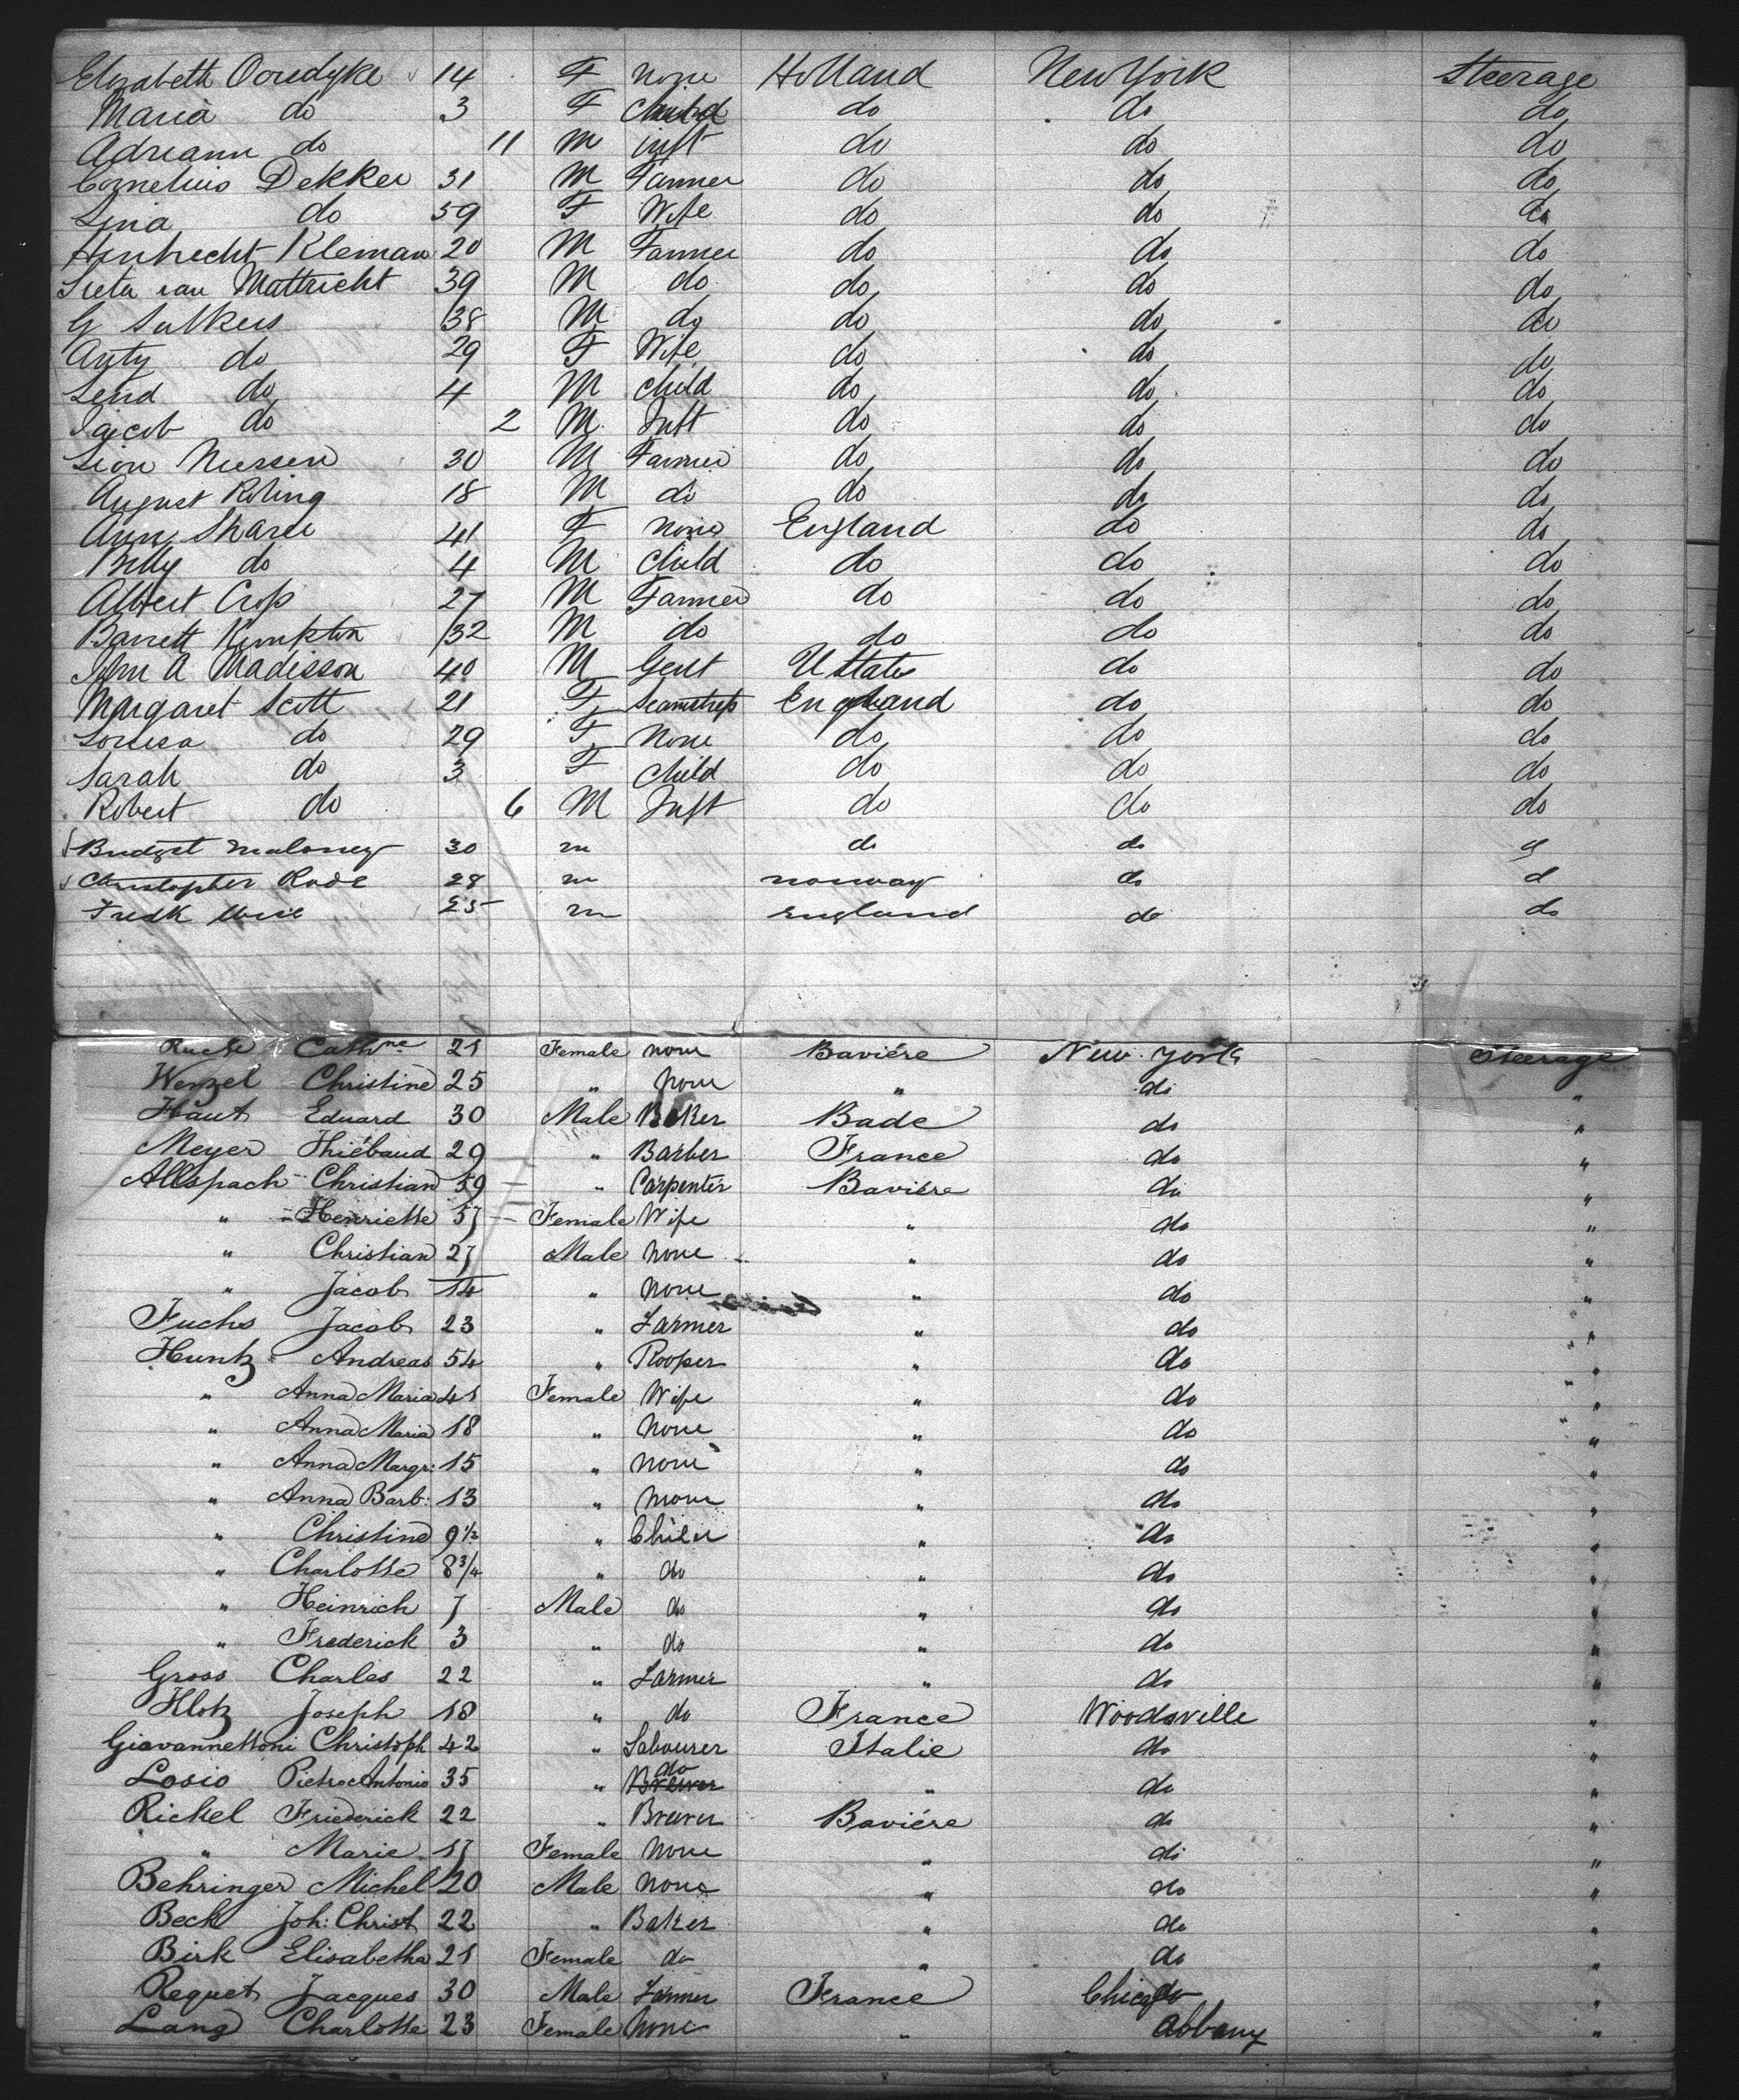 Elizabeth Ooredyke 14 F none Holland New York Steerage
Maria do 3 F Child do do do
Adriann do 11 M inft do do do
Cornelius Dekker 31 M Farmer do do do
Lina do 59 F Wife do do do
Kleman 20 M Farmer do do do
van Mattricht 39 M do do do do
G Sulkers 38 M do do do do
Anty do 29 F Wife do do do
Lend do 4 M Child do do do
Jacob do 2 M Inft do do do
Lion Niessen 30 M Farmer do do do
August Roling 18 M do do do do
Ann Sharee 41 F None England do do
Billy do 4 M Child do do do
Albert Crop 27 M Farmer do do do
Barrett Kimpton 32 M do do do do
John A Madisson 40 M Gent U States do do
Margaret Scott 21 F Seamstress England do do
Louisa do 29 F None do do do
Sarah do 3 F Child do do do
Robert do 6 M Inft do do do
Bridget Maloney 30 m do do d
Christopher Rode 28 m Norway do d
Fredk 25 m England do do
Cathne 21 Female none Baviére New York Steerage
Wenzel Christine 25 " none " do "
Haut Eduard 30 Male Baker Bade do "
Meyer Thiébaud 29 " Barber France do "
Allspach Christian 59 " Carpenter Baviére do "
" Henriette 57 Female Wife " do "
" Christian 27 Male none " do "
" Jacob 14 " none " do "
Fuchs Jacob 23 " Farmer " do "
Huntz Andreas 54 " Rooper " do "
" Anna Maria 41 Female Wife " do "
" Anna Maria 18 " none " do "
" Anna Margr: 15 " none " do "
" Anna Barb: 13 " none " do "
" Christine 9 1/2 " Child " do "
" Charlotte 8 3/4 " do " do "
" Heinrich 7 Male do " do "
" Frederick 3 " do " do "
Gross Charles 22 " Farmer " do "
Klotz Joseph 18 " do France Woodsville "
Giovannettoni Christoph 42 " Labourer Italie do "
Losio Pietro Antonio 35 " Brewer do " do "
Rickel Friederick 22 " Brewer Baviére do "
" Marie 17 Female None " do "
Behringer Michel 20 Male None " do "
Beck Joh: Christ 22 " Baker " do "
Birk Elisabetha 21 Female do " do "
Requet Jacques 30 Male Farmer France Chicago "
Lang Charlotte 23 Female None " Albany "